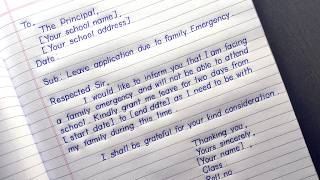 To,
The Principal,
[Your school name],
[Your school address]
Date........
Sub : Leave application due to family Emergency.
Respected Sir,
I would like to inform you that I am facing
a family emergency and will not be able to attend
school. Kindly grant me leave for two days from
[start date] to [end date] as I need to be with
my family during this time.
I shall be grateful for your kind consideration.
Thanking you,
Yours sincerely,
[Your name],
Class..
Roll no.